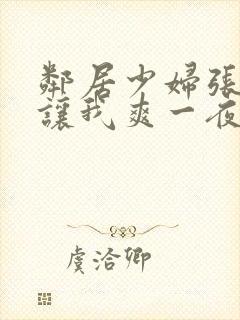 鄰居少婦張
讓我爽一夜
虞洽卿